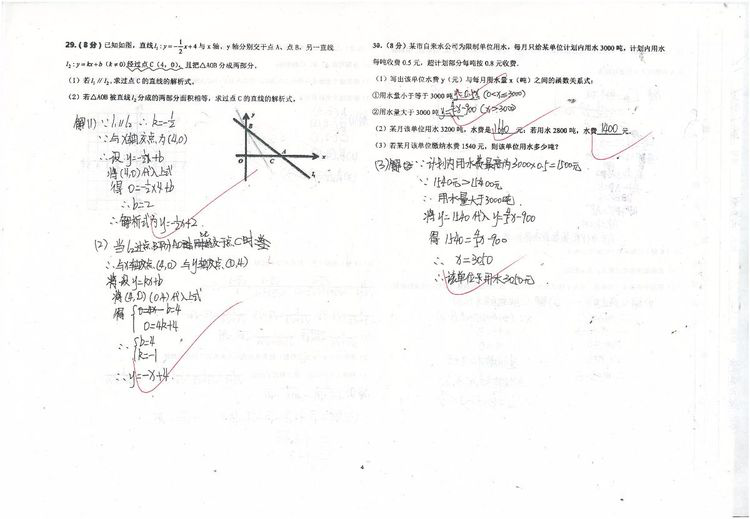 29.(8分)已知如图,直线l₁:y=-1/2x+4与x轴,y轴分别交于点A、点B,另一直线
l₂:y=kx+b(k≠0)经过点C(4,0),且把△AOB分成两部分.
(1)若l₁//l₂,求过点C的直线的解析式.
(2)若△AOB被直线l₂分成的两部分面积相等,求过点C的直线的解析式.
解(1)∵l₁//l₂ ∴k=-1/2
∵与x轴交点为(4,0)
∴设y=-1/2x+b
将(4,0)代入上式
得 0=-1/2×4+b
∴b=2
∴解析式为y=-1/2x+2.
y
B
O
C
A
x
l₁
(2)当l₂过点B
∴与x轴交点(4,0)与y轴交点(0,4)
设y=kx+b
将(4,0)(0,4)代入上式
得
0=4k+4
∴ b=4
k=-1
∴y=-x+4.
30.(8分)某市自来水公司为限制单位用水,每月只给某单位计划内用水3000吨,计划内用水
每吨收费0.5元,超计划部分每吨按0.8元收费.
(1)写出该单位水费y(元)与每月用水量x(吨)之间的函数关系式:
①用水量小于等于3000吨 y=0.5x (0<x≤3000)
②用水量大于3000吨 y=4/5x-900 (x>3000)
(2)某月该单位用水3200吨,水费是1660元;若用水2800吨,水费1400元.
(3)若某月该单位缴纳水费1540元,则该单位用水多少吨?
(3)解 ∵计划内用水费最高为3000×0.5=1500元
∵1540元>1500元
∴用水量大于3000吨.
将y=1540代入y=4/5x-900
得1540=4/5x-900
∴ x=3050
∴该单位用水3050元
4